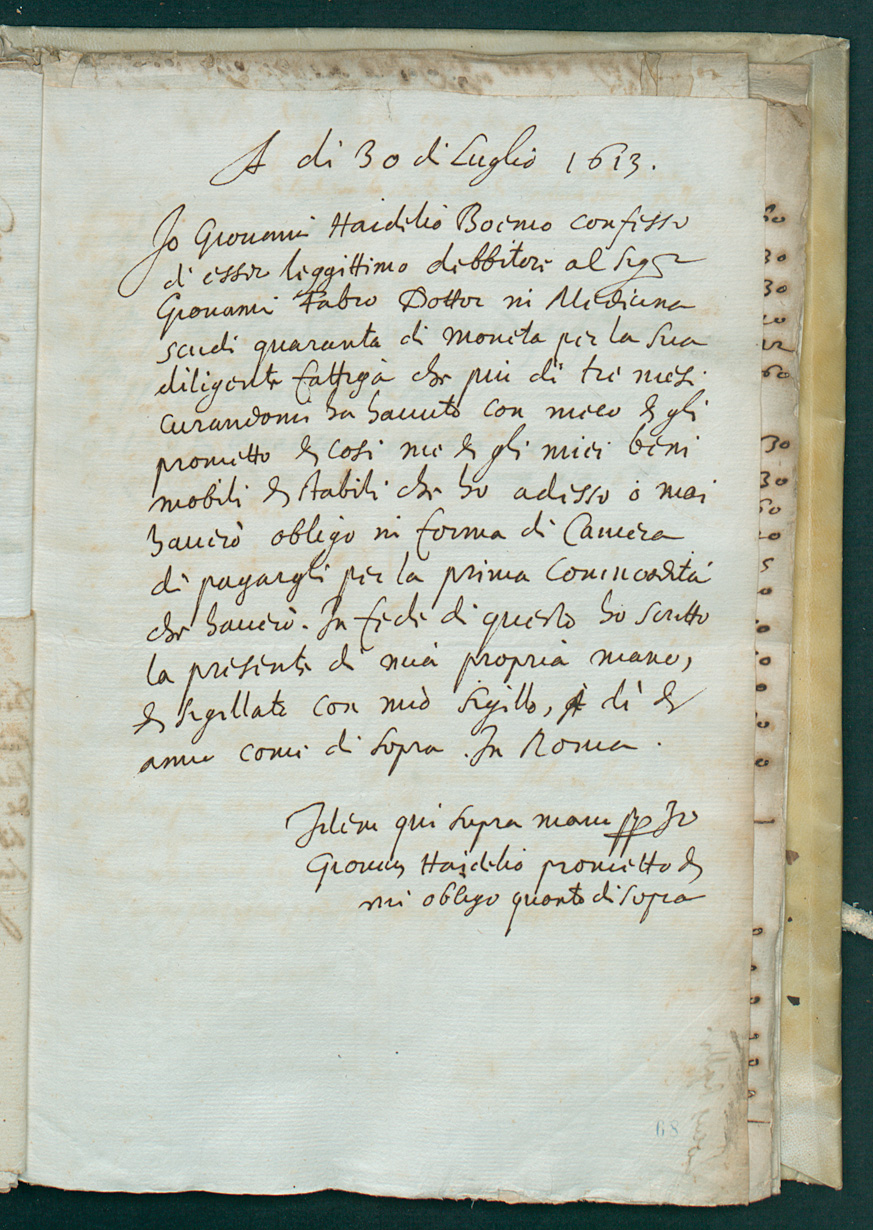 A di 30 di Luglio 1613.
Jo Giouanni Haidelio Boemo confesso
di esser leggittimo debbitore al Sigr
Giouanni Fabro Dottor in Medicina
scudi quaranta di moneta per la sua
diligente fattiga che piu di tre mesi
curandomi ha hauuto con meco & gli
prometto & cosi me & gli miei beni
mobili & stabili che ho adesso o mai
hauerò obligo in forma di Camera
di pagargli per la prima commodità
che hauerò. In fede di questo ho scritto
la presente di mia propria mano,
& sigillata con mio sigillo, A di &
anno come di sopra. In Roma.
Idem qui supra manu pp Jo
Giouan Haidelio prometto &
mi obligo quanto di sopra
68
60
30
30
60
30
30
60